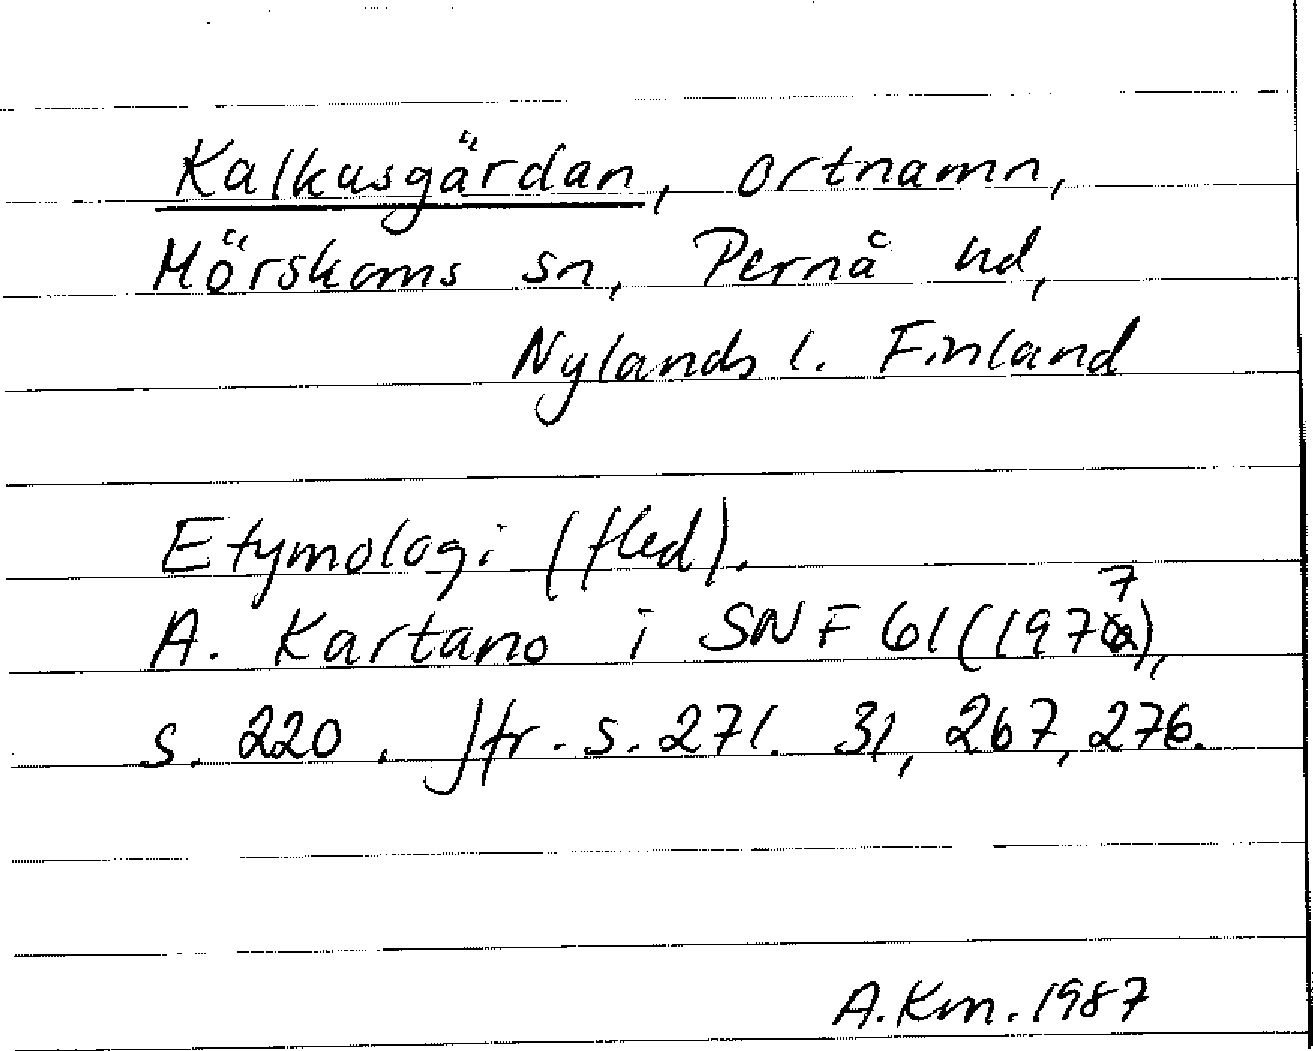 Kalkusgärdan, ortnamn,
Mörskoms sn, Pernå hd,
Nylands l. Finland
Etymologi (fled).
A. Kartano i SNF 61 (1977),
s. 220. Jfr. s. 271. 31, 267, 276.
A.Km. 1987